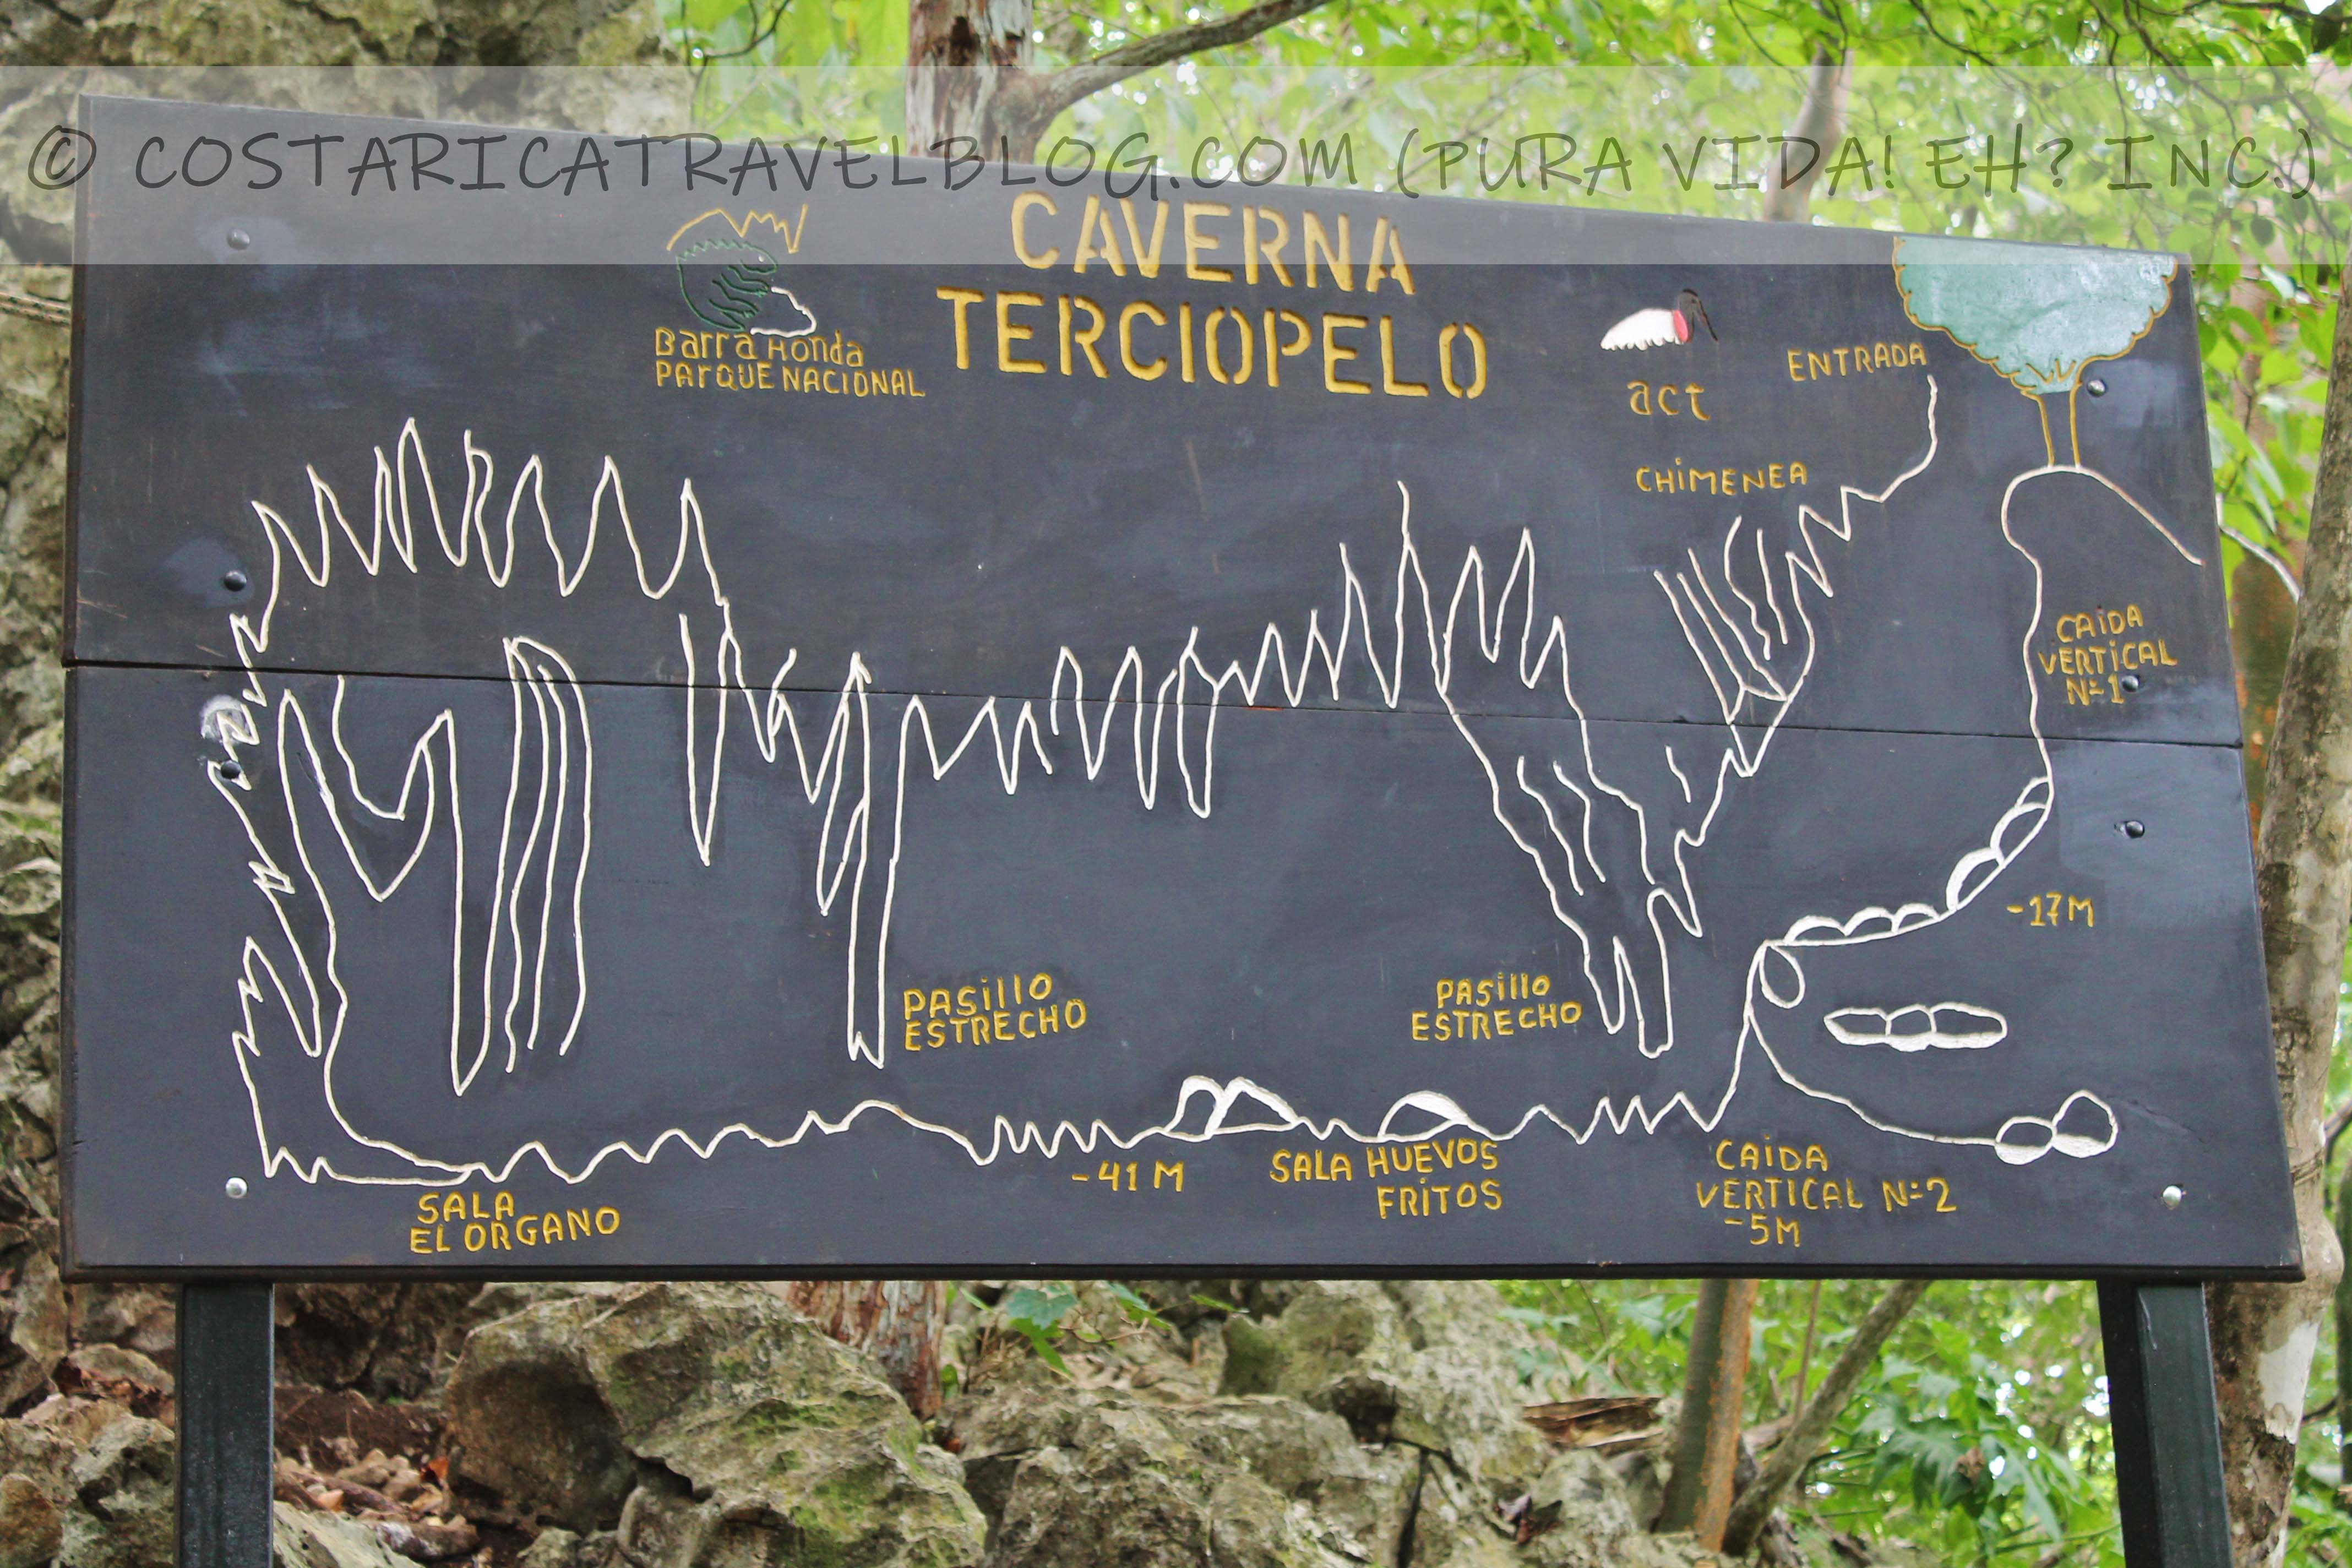 © COSTARICATRAVELBLOG.COM (PURA VIDA! EH? INC.)
CAVERNA
TERCIOPELO
Barra Honda
PARQUE NACIONAL
act
ENTRADA
CHIMENEA
CAIDA
VERTICAL
Nº1
-17M
PASILLO
ESTRECHO
PASILLO
ESTRECHO
-41 M
SALA HUEVOS
FRITOS
CAIDA
VERTICAL Nº2
-5M
SALA
EL ORGANO